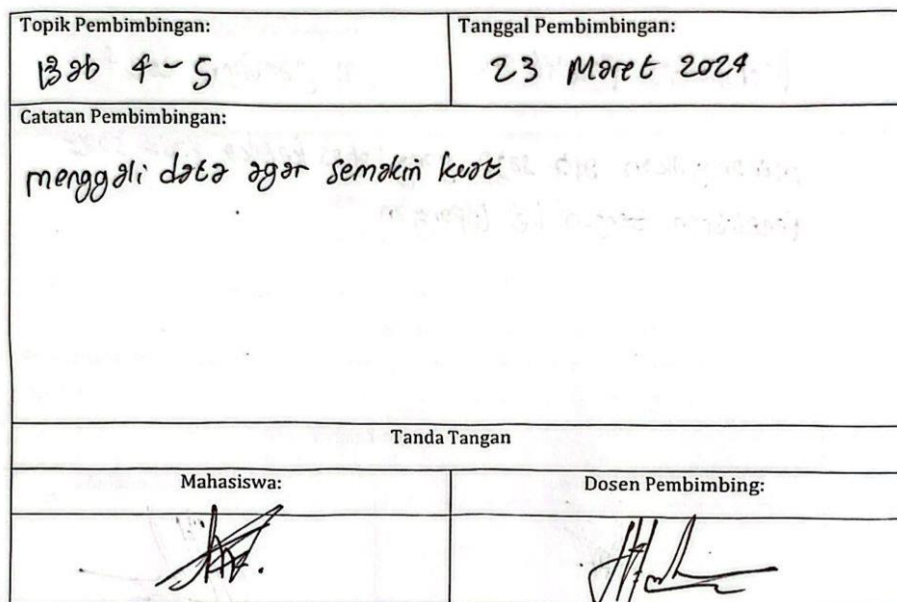 Topik Pembimbingan:
Tanggal Pembimbingan:
Bab 4 - 5
23 Maret 2024
Catatan Pembimbingan:
menggali data agar semakin kuat
Tanda Tangan
Mahasiswa:
Dosen Pembimbing: